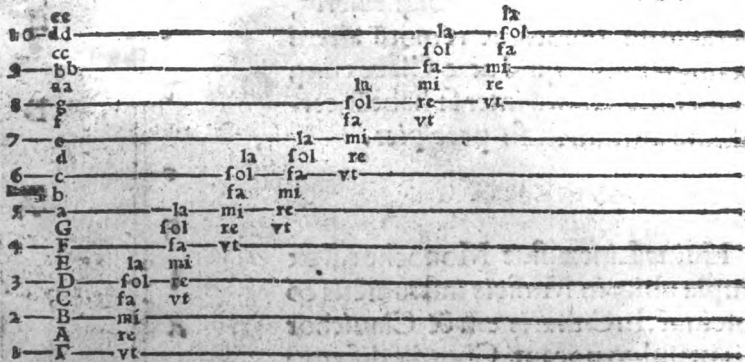 ee la
10 dd la sol
cc sol fa
9 bb fa mi
aa la mi re
8 g sol re vt
f fa vt
7 e la mi
d la sol re
6 c sol fa vt
b fa mi
5 a la mi re
G sol re vt
4 F fa vt
E la mi
3 D sol re
C fa vt
2 B mi
A re
1 Γ vt